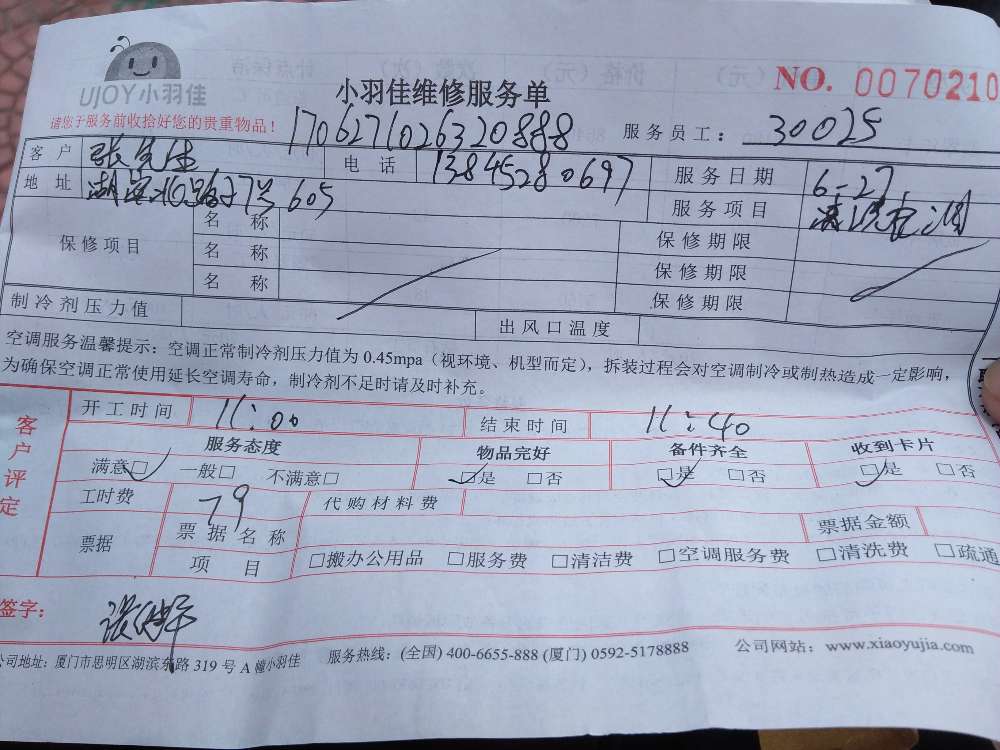 UJOY小羽佳
小羽佳维修服务单
NO. 0070210
请您于服务前收拾好您的贵重物品！
1706271026320888
服务员工： 30025
客户 张先生 电话 13845280697 服务日期 6-27
地址 605 服务项目 清洗空调
保修项目 名称 保修期限
名称 保修期限
名称 保修期限
制冷剂压力值 出风口温度
空调服务温馨提示：空调正常制冷剂压力值为0.45mpa（视环境、机型而定），拆装过程会对空调制冷或制热造成一定影响，
为确保空调正常使用延长空调寿命，制冷剂不足时请及时补充。
客户评定
开工时间 11：00 结束时间 11：40
服务态度 物品完好 备件齐全 收到卡片
满意□ 一般□ 不满意□ □是 □否 □是 □否 □是 □否
工时费 79 代购材料费
票据 票据名称 票据金额
项目 □搬办公用品 □服务费 □清洁费 □空调服务费 □清洗费 □疏通
签字：
公司地址：厦门市思明区湖滨东路 319 号 A 幢小羽佳 服务热线：(全国) 400-6655-888 (厦门) 0592-5178888 公司网站：www.xiaoyujia.com